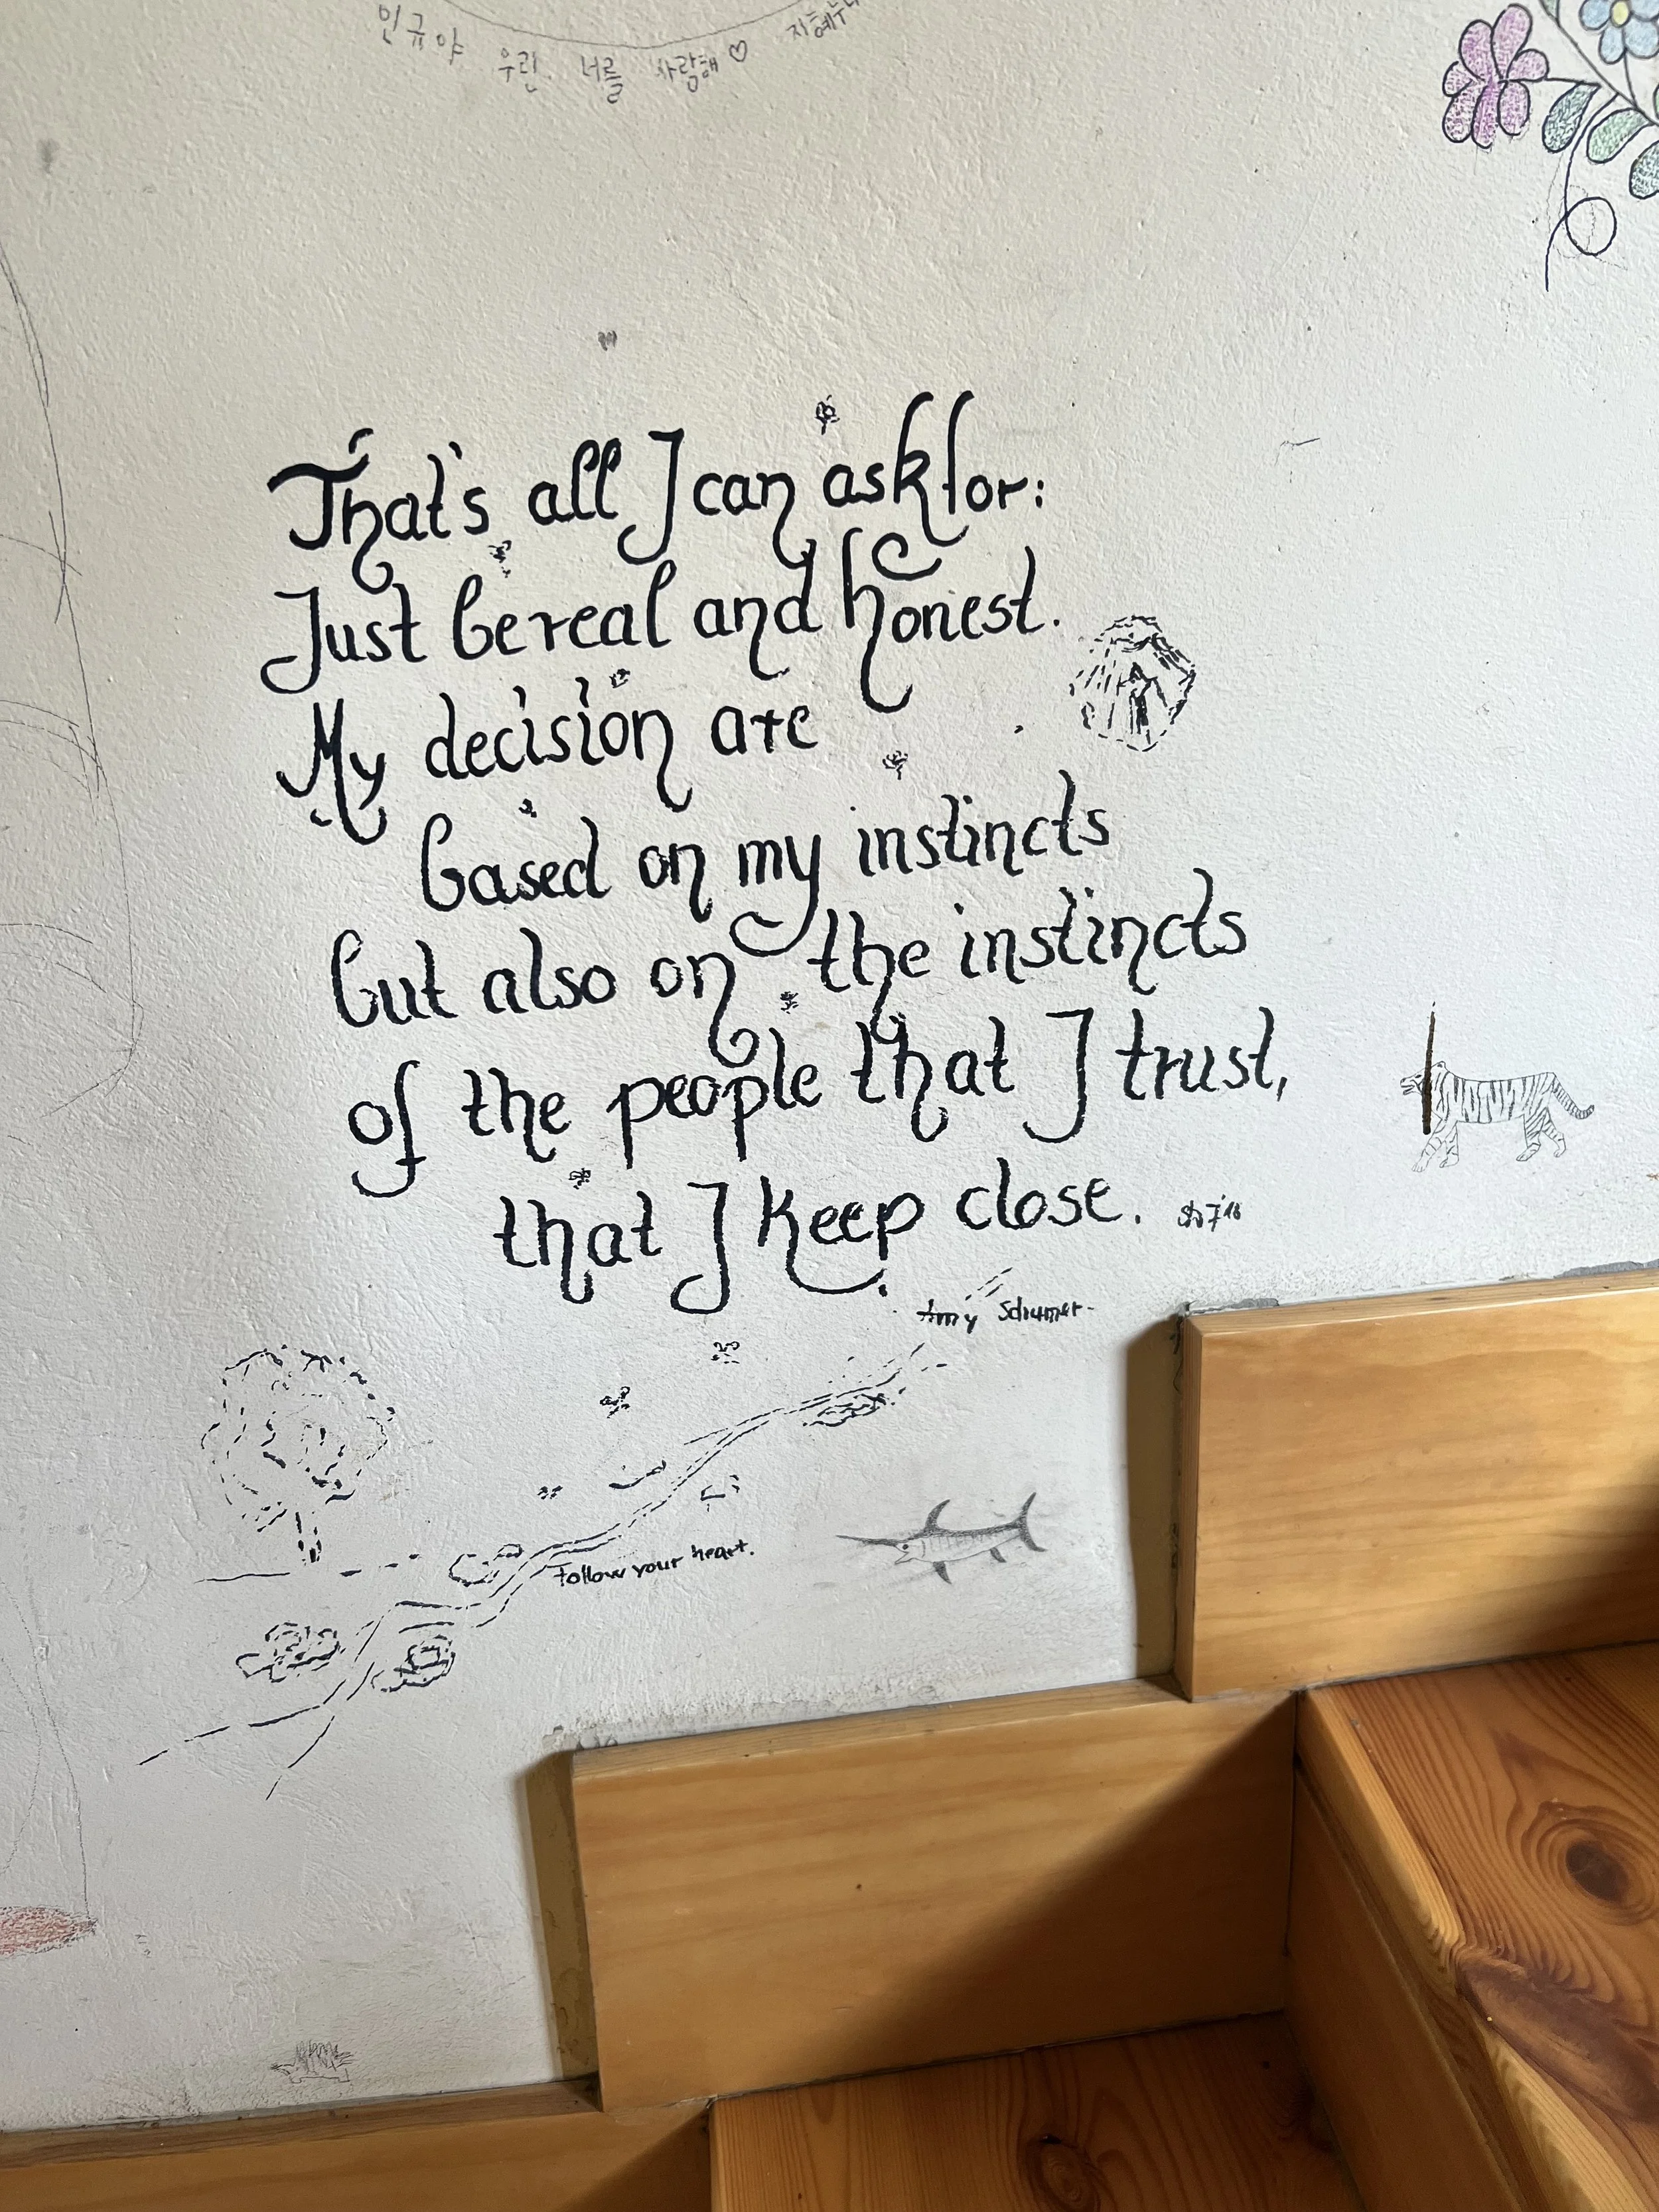 인규야 우린 너를 사랑해♡ 지혜누나
That's all I can ask for:
Just be real and honest.
My decision are
based on my instincts
but also on the instincts
of the people that I trust,
that I keep close.
Amy Schumer
Follow your heart.